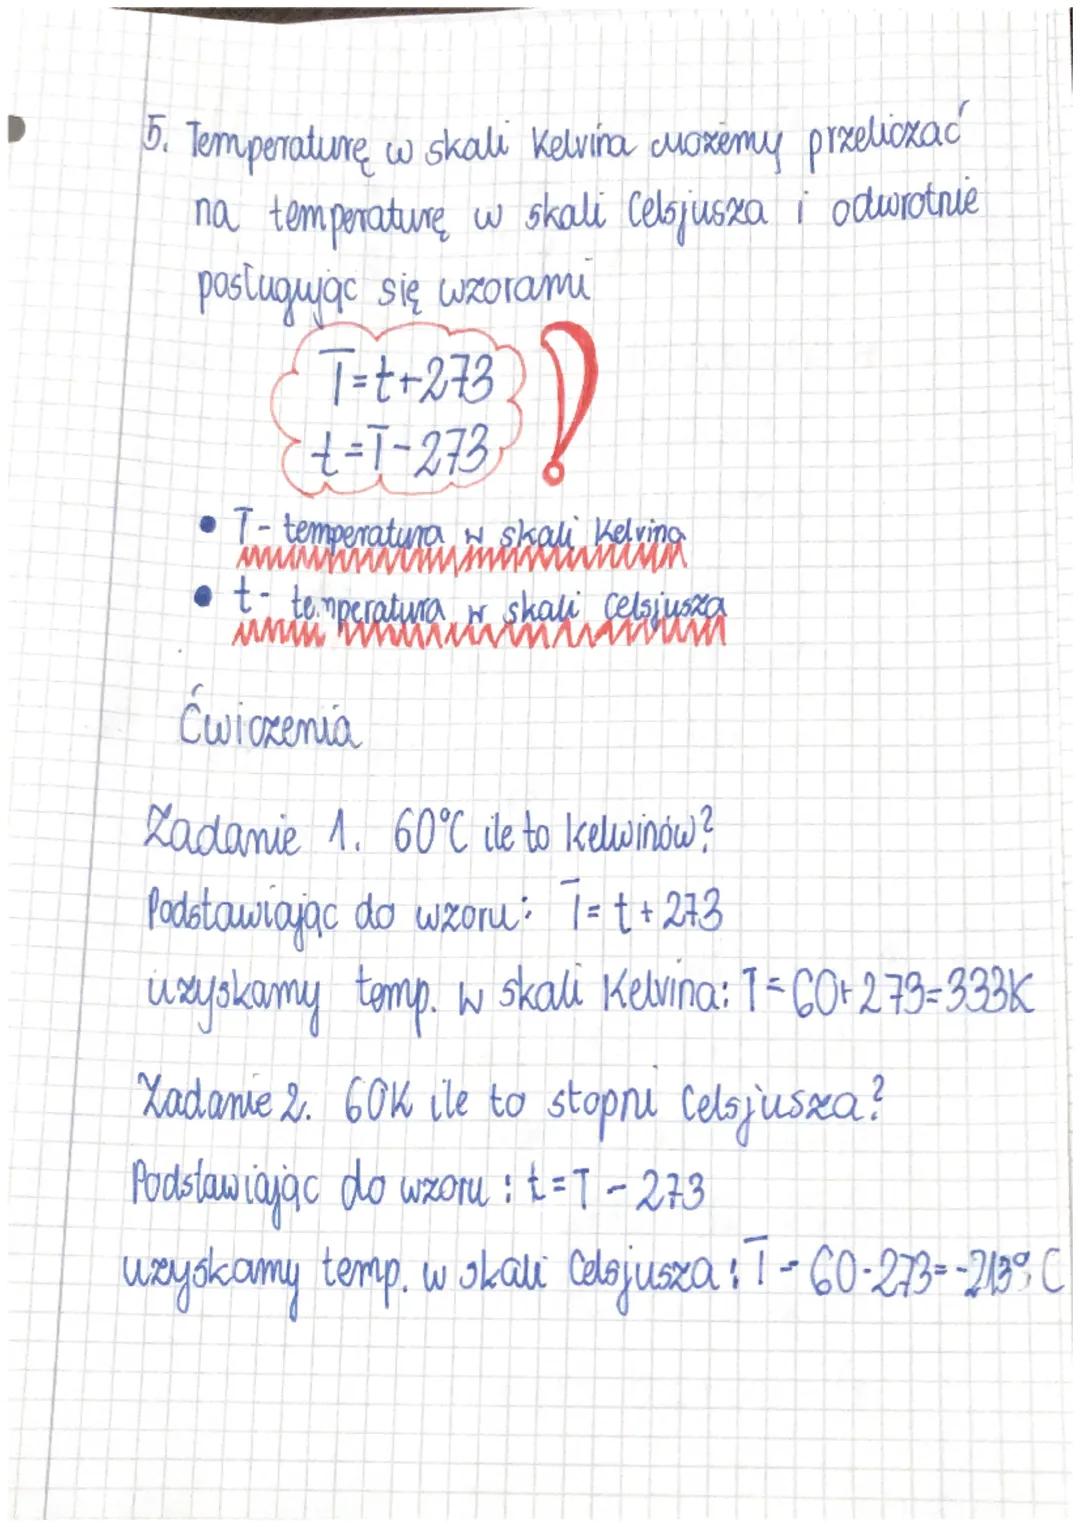 5. Temperaturę w skali Kelvina możemy przeliczać
na temperaturę w skali Celsjusza i odwrotnie
posługując się wzorami
T=t+273
t=T-273
!
• T- temperatura w skali Kelvina
• t- temperatura w skali Celsjusza
Ćwiczenia
Zadanie 1. 60°C ile to kelwinów?
Podstawiając do wzoru: T= t + 273
uzyskamy temp. w skali Kelvina: T=60+273=333K
Zadanie 2. 60K ile to stopni Celsjusza?
Podstawiając do wzoru : t=T - 273
uzyskamy temp. w skali Celsjusza : T - 60-273=-213°C